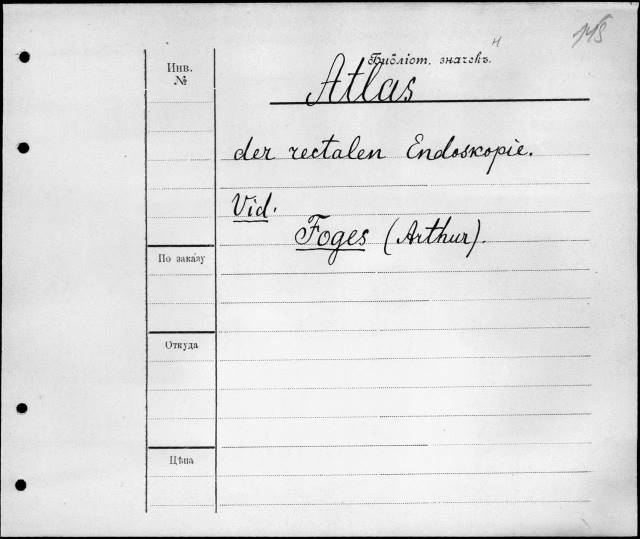 145
Инв.
№
Библіот. значекъ.
Atlas
der rectalen Endoskopie.
Vid.
Foges (Arthur).
По заказу
Откуда
Цѣна